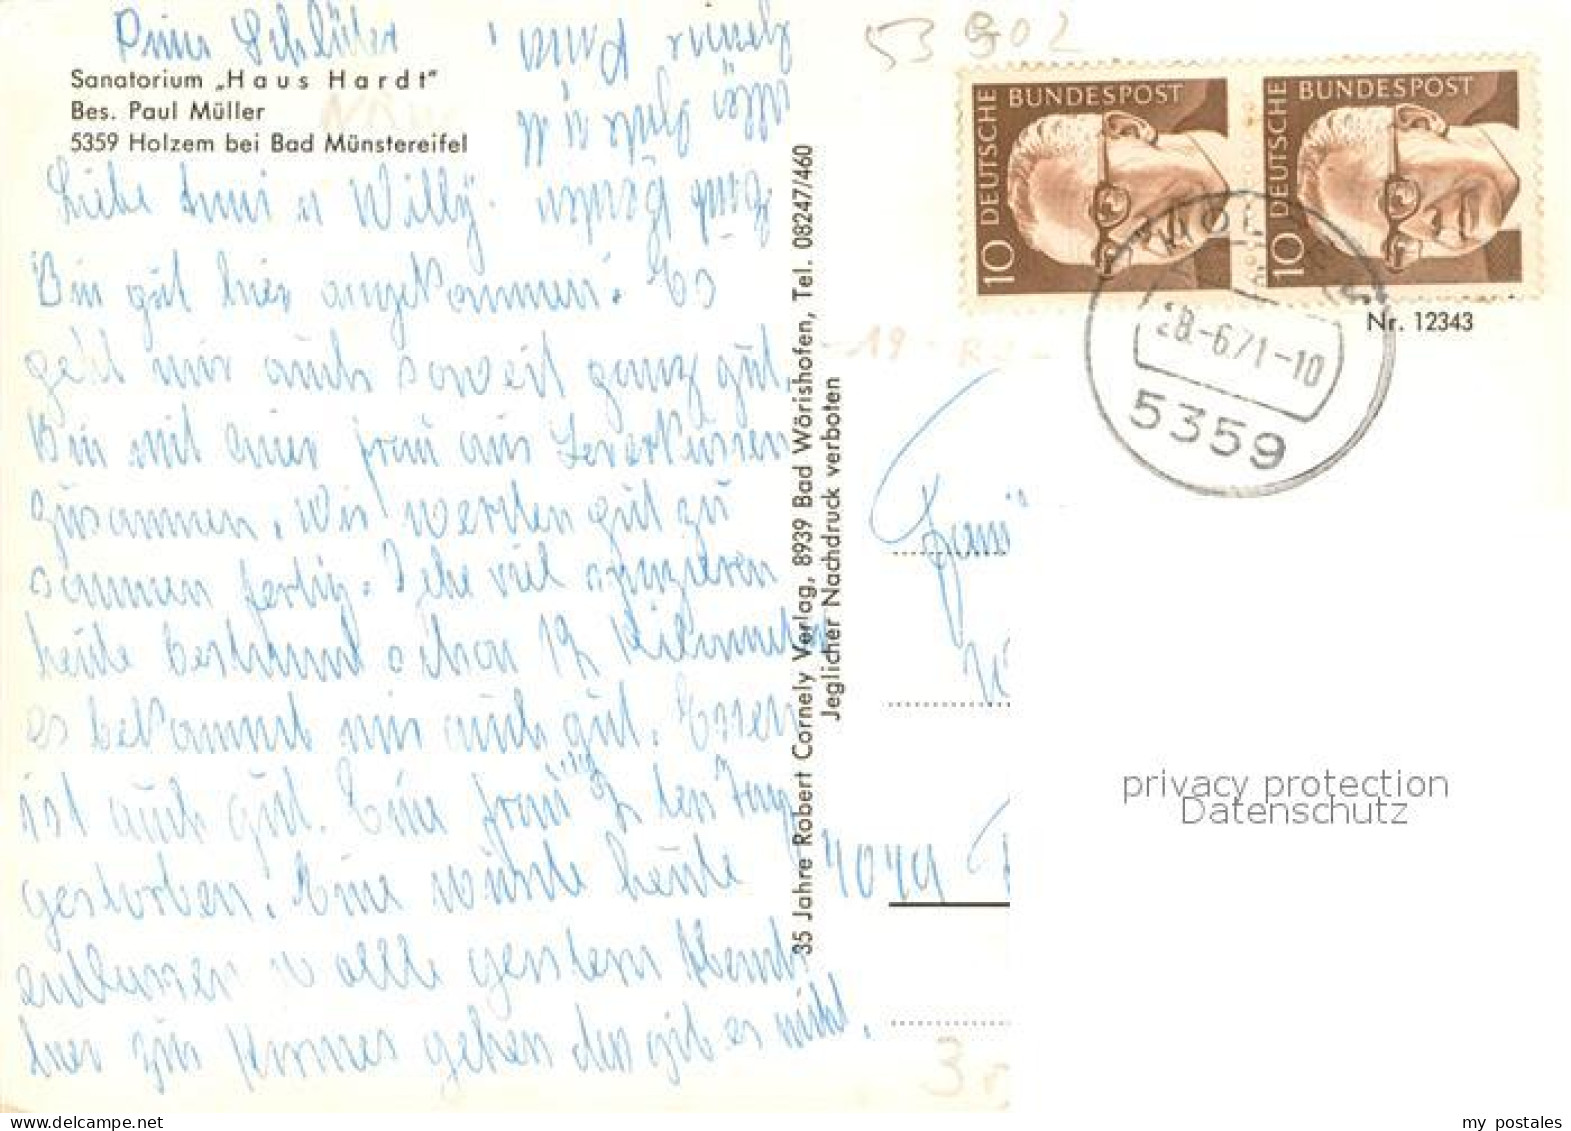 Sanatorium „Haus Hardt"
Bes. Paul Müller
5359 Holzem bei Bad Münstereifel
Liebe Anni u Willy.
Bin gut hier angekommen. Es
geht mir auch soweit ganz gut.
Bin mit einer Frau aus Leverkusen
zusammen. Wir werden gut zu
sammen fertig. Gehe viel spazieren
heute bestimmt schon 12 Kilometer
es bekommt mir auch gut. Essen
ist auch gut. Eine Frau den Tag
gestorben. Eine wurde heute
entlassen u wollte gestern Abend
hier zur Kirmes gehen das gibt es nicht.
35 Jahre Robert Cornely Verlag, 8939 Bad Wörishofen, Tel. 08247/460
Jeglicher Nachdruck verboten
53 902
10 DEUTSCHE BUNDESPOST
10 DEUTSCHE BUNDESPOST
28.-6.71-10
5359
Nr. 12343
Fami
4049
privacy protection
Datenschutz
my_postales